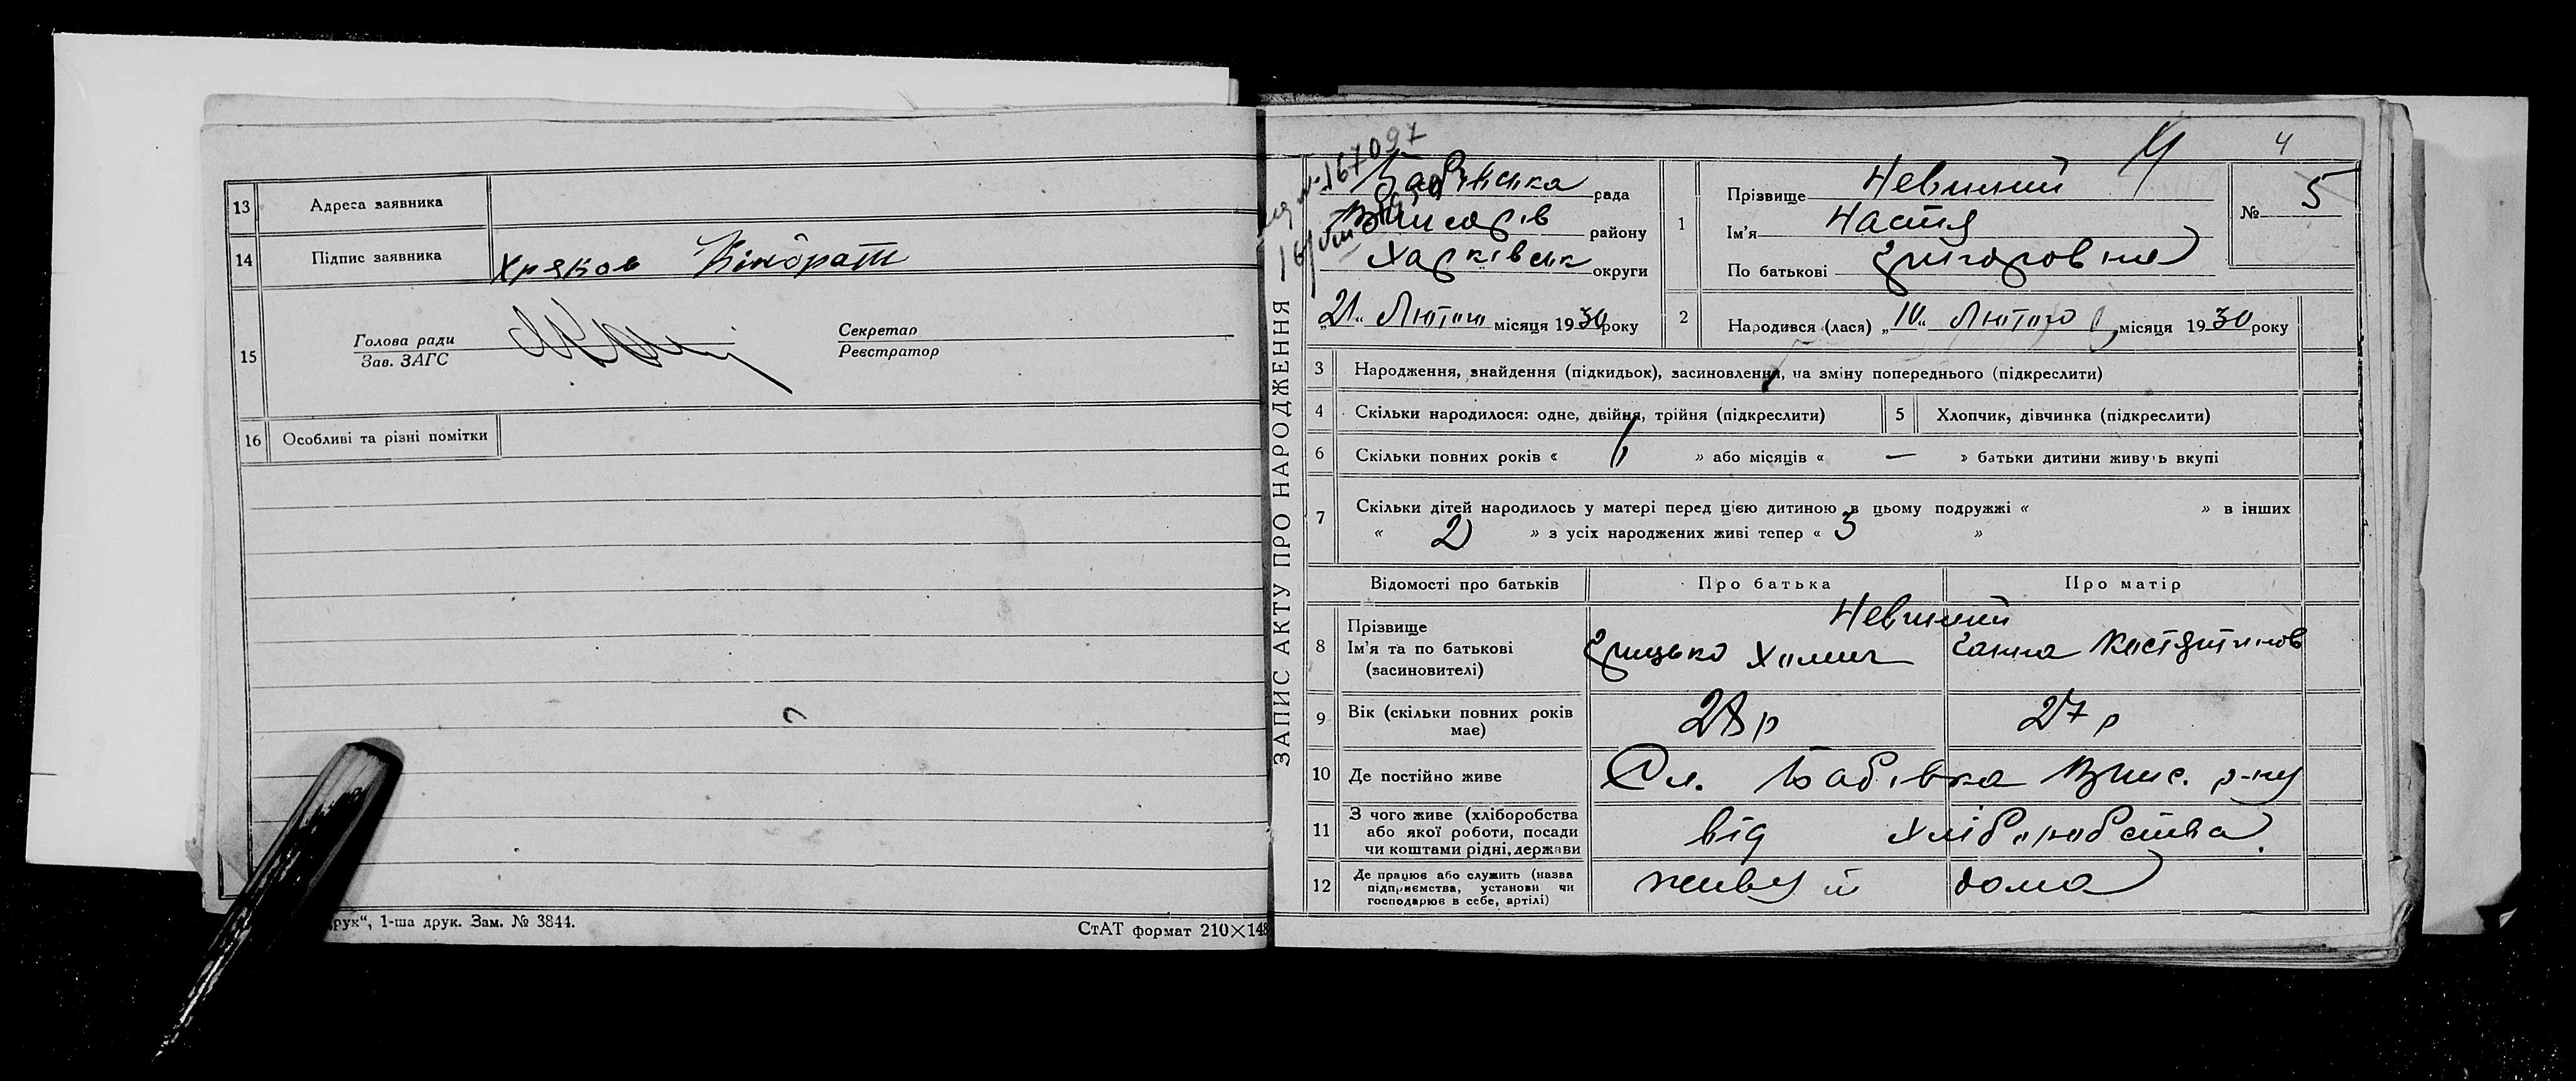 13 Адреса заявника
14 Підпис заявника Хряков Кіндрат
15 Голова ради Секретар
Зав. ЗАГС Реєстратор
16 Особливі та різні помітки
рук“, 1-ша друк. Зам. № 3844.
СтАТ формат 210×148
ЗАПИС АКТУ ПРО НАРОДЖЕННЯ
167097
4
рада
району
Харківськ округи
„21“ Лютого місяця 1930 року
1 Прізвище Невиний
Ім'я Настя
По батькові Григоровна
№ 5
2 Народився (лася) „10“ Лютого місяця 1930 року
3 Народження, знайдення (підкидьок), засиновлення, на зміну попереднього (підкреслити)
4 Скільки народилося: одне, двійня, трійня (підкреслити) 5 Хлопчик, дівчинка (підкреслити)
6 Скільки повних років « » або місяців « — » батьки дитини живуть вкупі
7 Скільки дітей народилось у матері перед цією дитиною в цьому подружжі « » в інших
« 2 » з усіх народжених живі тепер « 3 »
Відомості про батьків Про батька Про матір
8 Прізвище Невиний
Ім'я та по батькові Грицько Хомич Ганна Костянтинов
(засиновителі)
9 Вік (скільки повних років має) 28 р 27 р
10 Де постійно живе Сл. Бабівка Вчис. р-ну
11 З чого живе (хліборобства
або якої роботи, посади
чи коштами рідні, держави від хліборобства
12 Де працює або служить (назва
підприємства, установи чи
господарює в себе, артілі) живуть дома